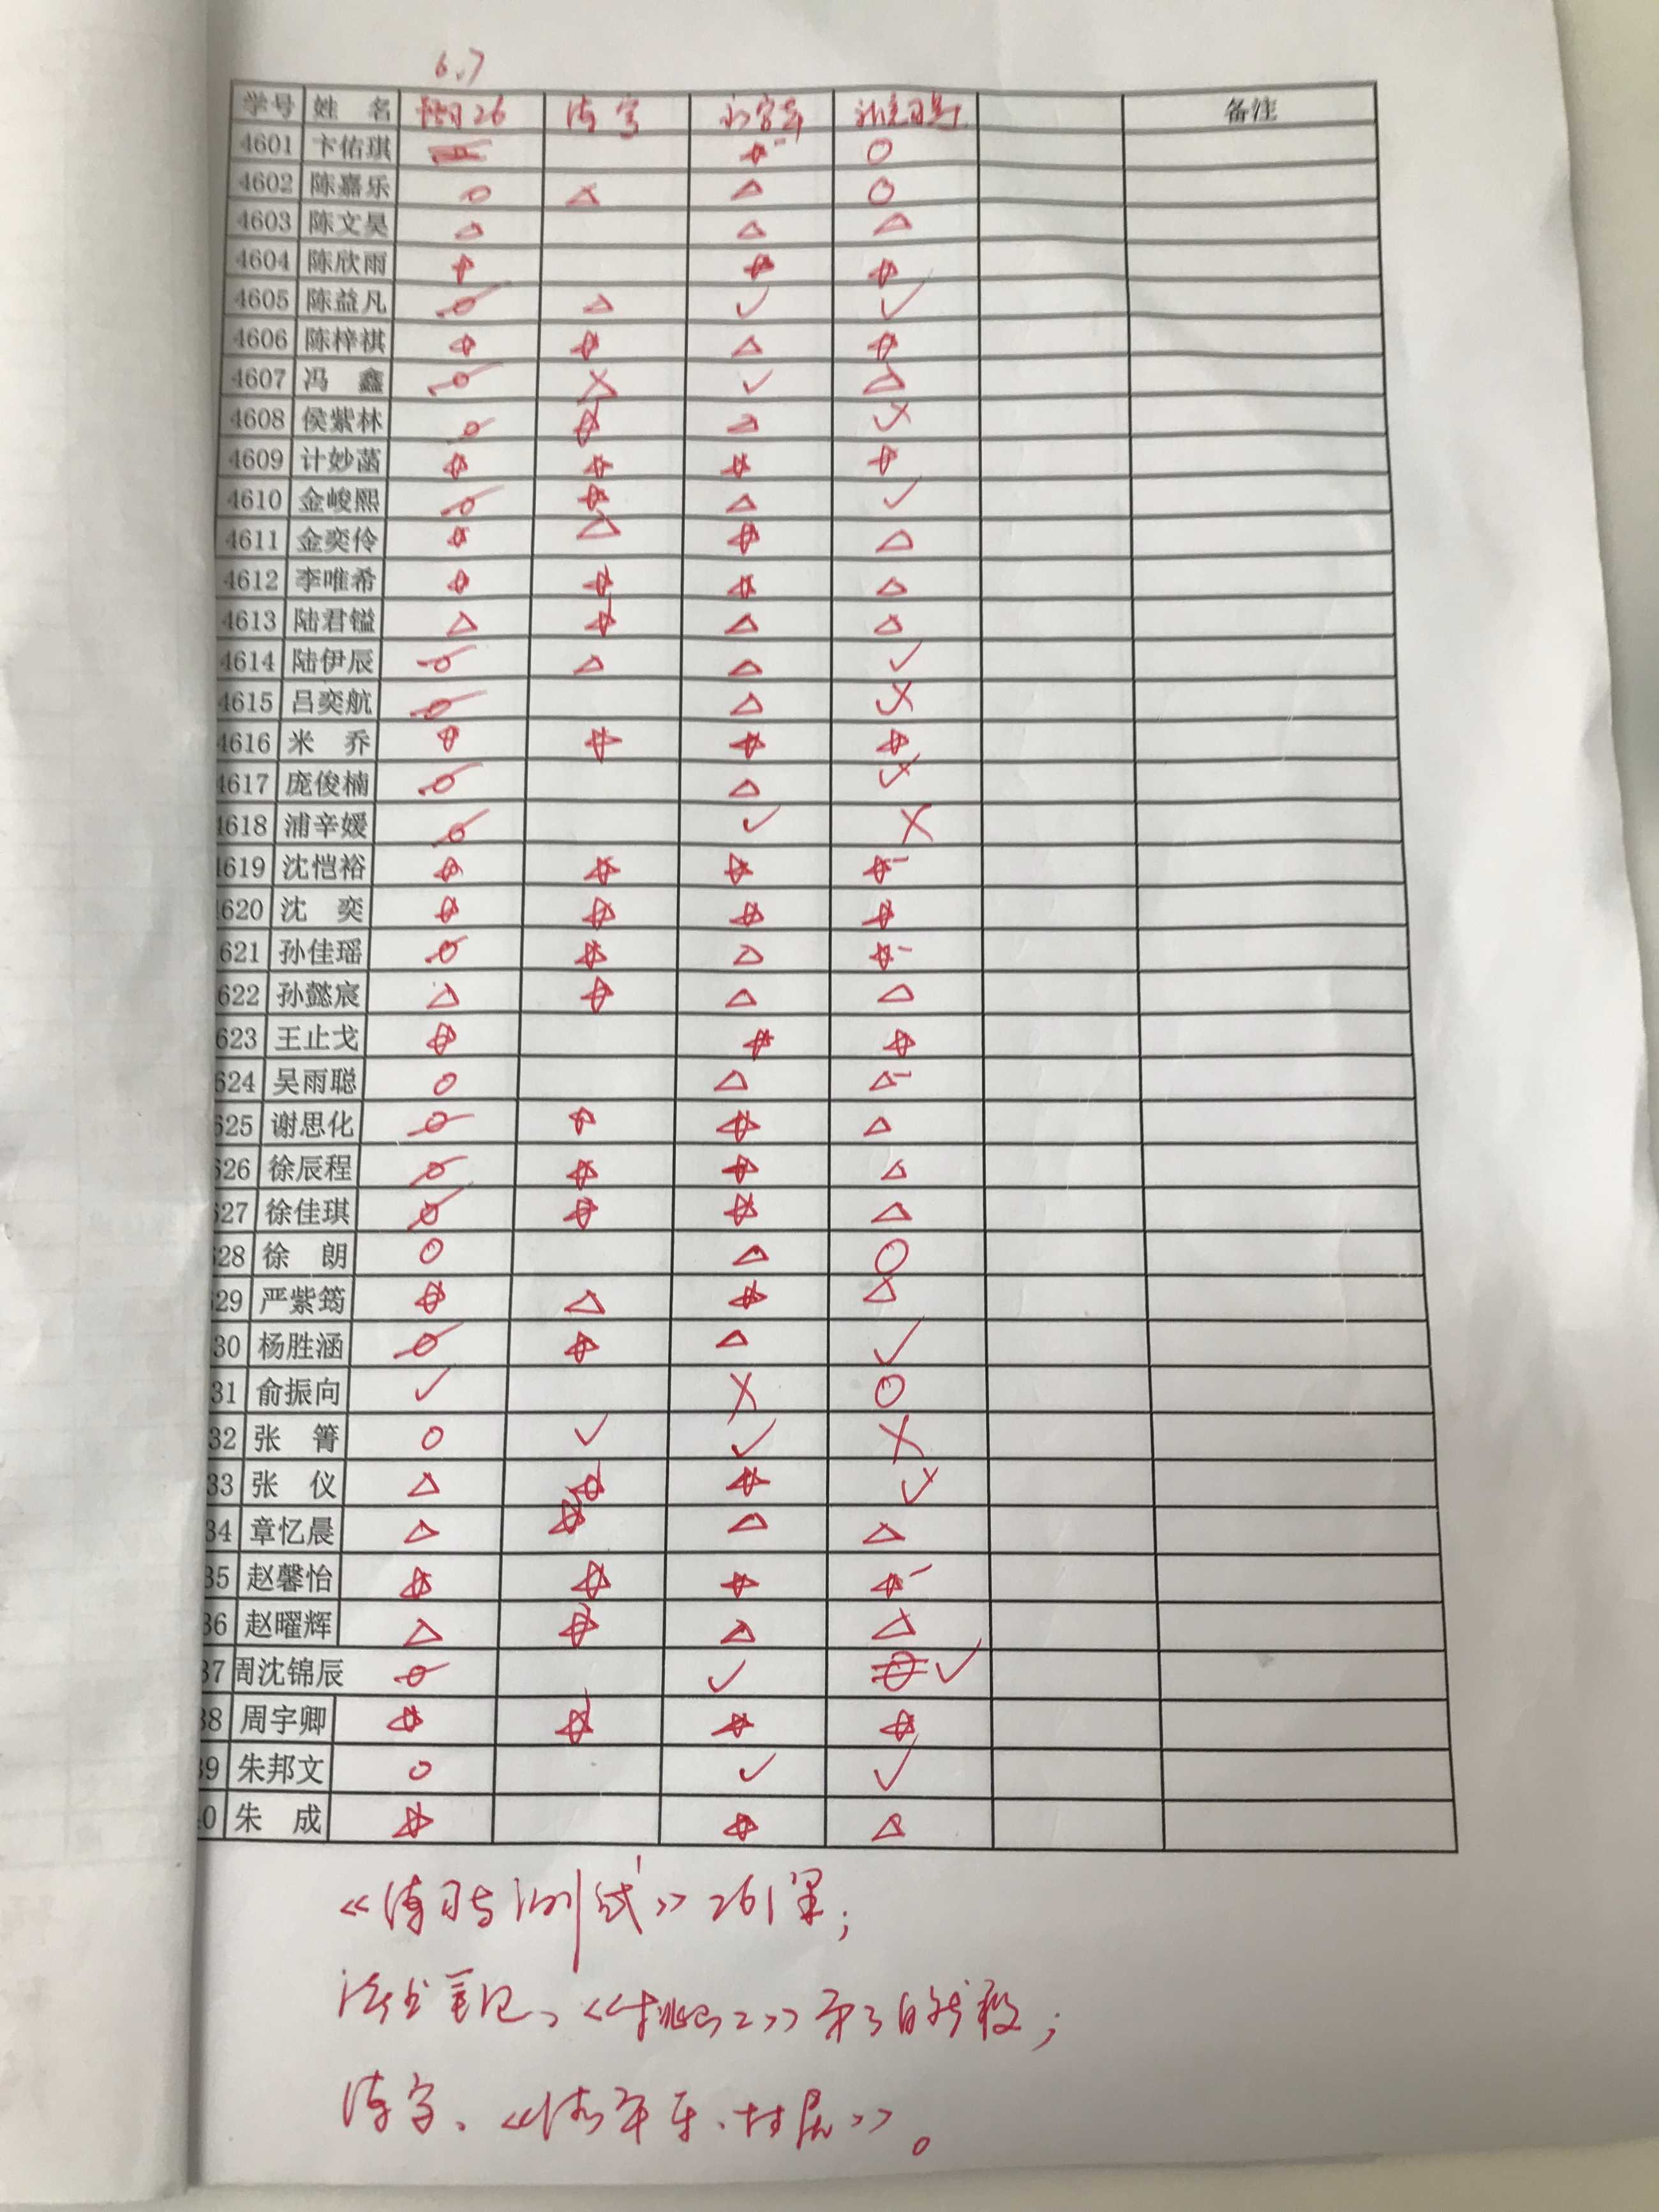 6.7
学号 姓 名 练习26 练字 备注
4601 卞佑琪
4602 陈嘉乐
4603 陈文昊
4604 陈欣雨
4605 陈益凡
4606 陈梓祺
4607 冯 鑫
4608 侯紫林
4609 计妙菡
4610 金峻熙
4611 金奕伶
4612 李唯希
4613 陆君镒
4614 陆伊辰
4615 吕奕航
4616 米 乔
4617 庞俊楠
4618 浦辛媛
4619 沈恺裕
4620 沈 奕
621 孙佳瑶
622 孙懿宸
623 王止戈
624 吴雨聪
625 谢思化
626 徐辰程
627 徐佳琪
628 徐 朗
629 严紫筠
30 杨胜涵
31 俞振向
32 张 箐
33 张 仪
34 章忆晨
35 赵馨怡
36 赵曜辉
37 周沈锦辰
38 周宇卿
39 朱邦文
40 朱 成
《练习与测试》26课;
练字、《清平乐·村居》。